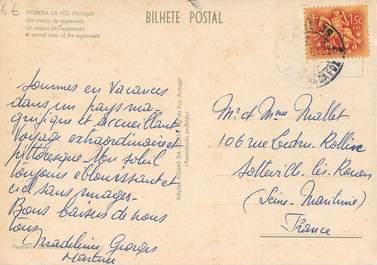 66
FIGUEIRA DA FOZ (Portugal)
Um trecho da esplanada
Un aspect de l'esplanade
A central view of the esplanade
BILHETE POSTAL
1$50
Sommes en Vacances
dans un pays ma-
gnifique et accueillant
Voyage extraordinaire et
pittoresque. Un soleil
toujours éblouissant et
ciel sans nuages -
Bons baisers de nous
tous
Madeleine Georges
Martine
Mr et Mme Mallet
106 rue Ledru-Rollin
Sotteville-les-Rouen
(Seine-Maritime)
France